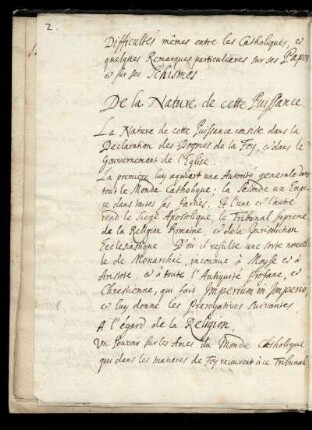 2.
Difficultés mêmes entre les Catholiques, &
quelques Remarques particulieres sur ses Papes
& sur ses Schismes
De la Nature de cette Puissance
La Nature de cette Puissance consiste dans la
Declaration des Dogmes de la Foy, & dans le
Gouvernement de l'Eglise.
La premiere luy aquiert une Autorité generale dans
tout le Monde Catholique; la seconde un Empi-
re dans toutes ses Parties. Et l'une & l'autre
rend le Siege Apostolique, le Tribunal supreme
de la Religion Romaine, & de la Jurisdiction
Ecclesiastique. D'où il resulte une sorte nouvel-
le de Monarchie, inconnue à Moyse & à
Aristote, & à toute l'Antiquité profane, &
Chretienne, qui fait Imperium in Imperio,
& luy donne les Prerogatives suivantes
A l'égard de la Religion,
Un Pouvoir sur les Ames du Monde Catholique
qui dans les matieres de Foy recourent à ce Tribunal